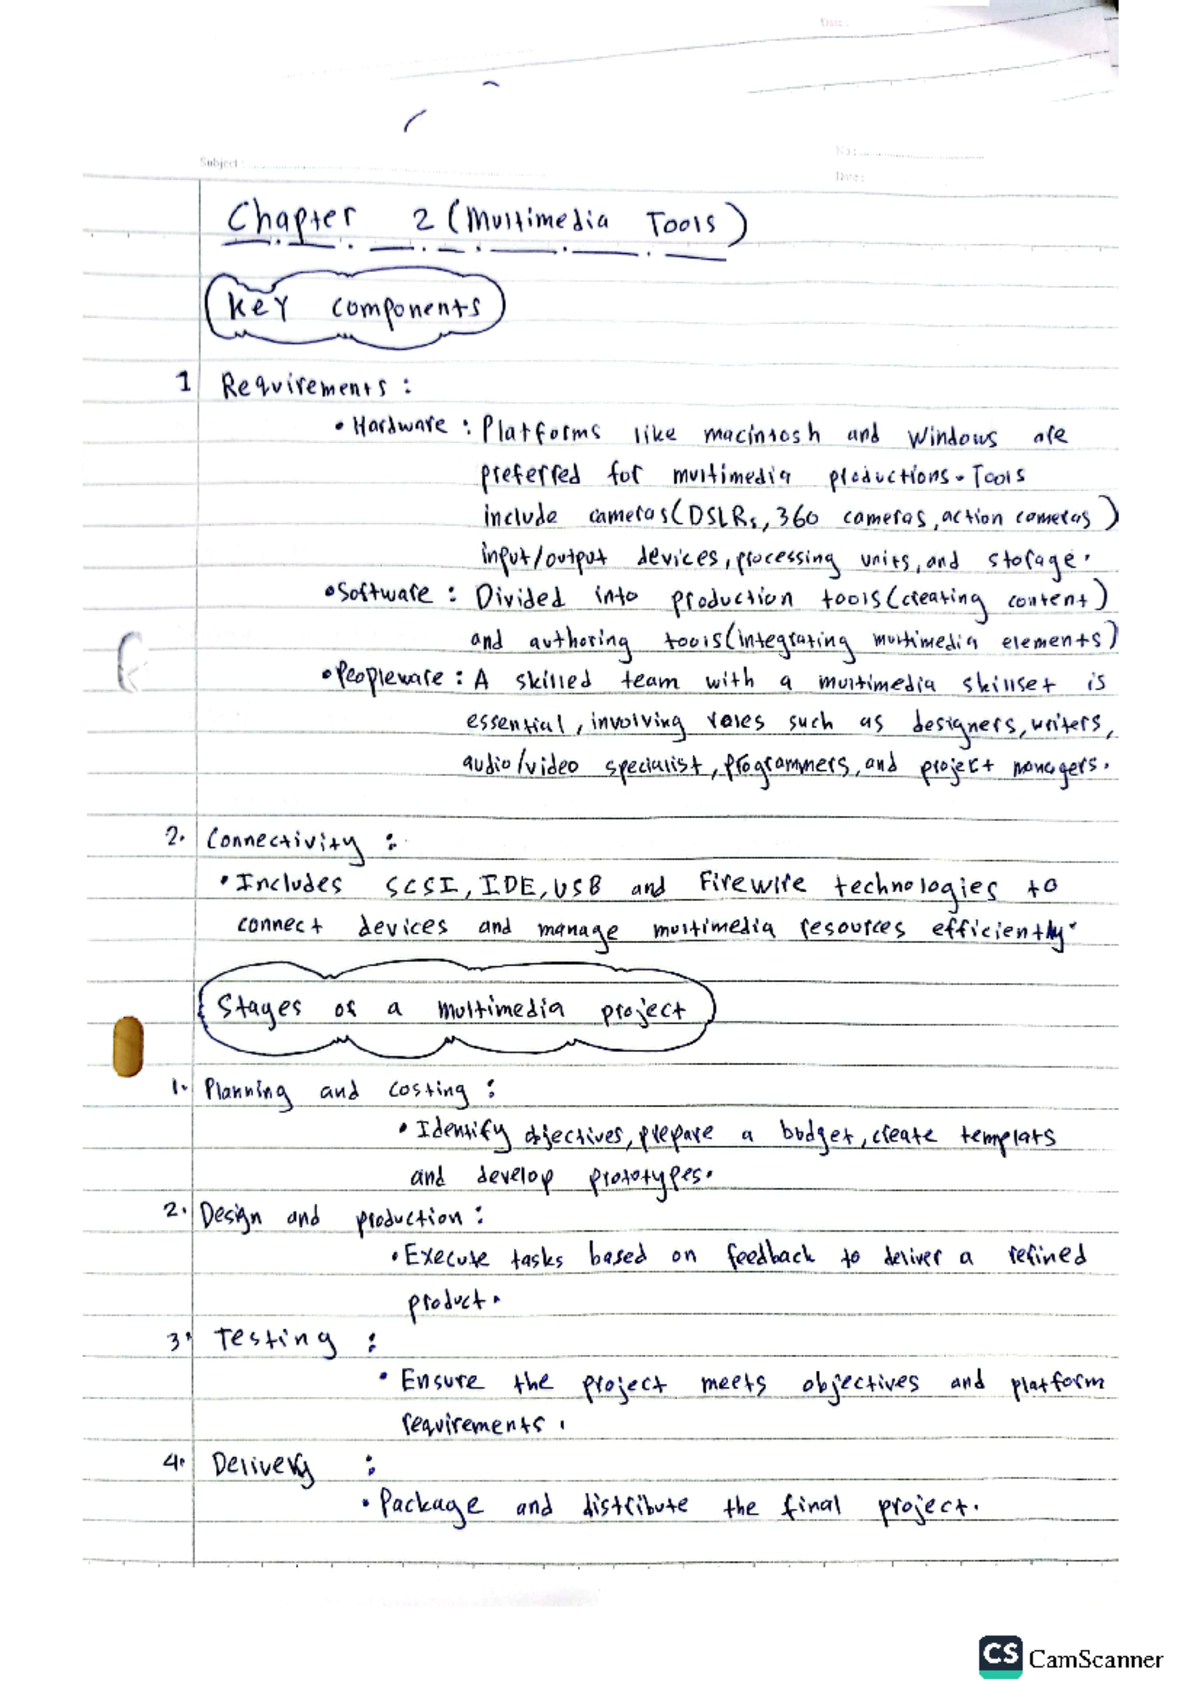 Date:
No:
Subject:
Date:
Chapter 2 (Multimedia Tools)
Key components
1 Requirements :
• Hardware : Platforms like macintosh and windows are
preferred for multimedia productions. Tools
include cameras(DSLRs, 360 cameras, action cameras)
input/output devices, processing units, and storage.
• Software : Divided into production tools(creating content)
and authoring tools(integrating multimedia elements)
• Peopleware : A skilled team with a multimedia skillset is
essential, involving roles such as designers, writers,
audio/video specialist, programmers, and project managers.
2. Connectivity :
• Includes SCSI, IDE, USB and Firewire technologies to
connect devices and manage multimedia resources efficiently.
Stages of a multimedia project
1. Planning and costing :
• Identify objectives, prepare a budget, create templats
and develop prototypes.
2. Design and production :
• Execute tasks based on feedback to deliver a refined
product.
3. Testing :
• Ensure the project meets objectives and platform
requirements.
4. Delivery :
• Package and distribute the final project.
CS CamScanner